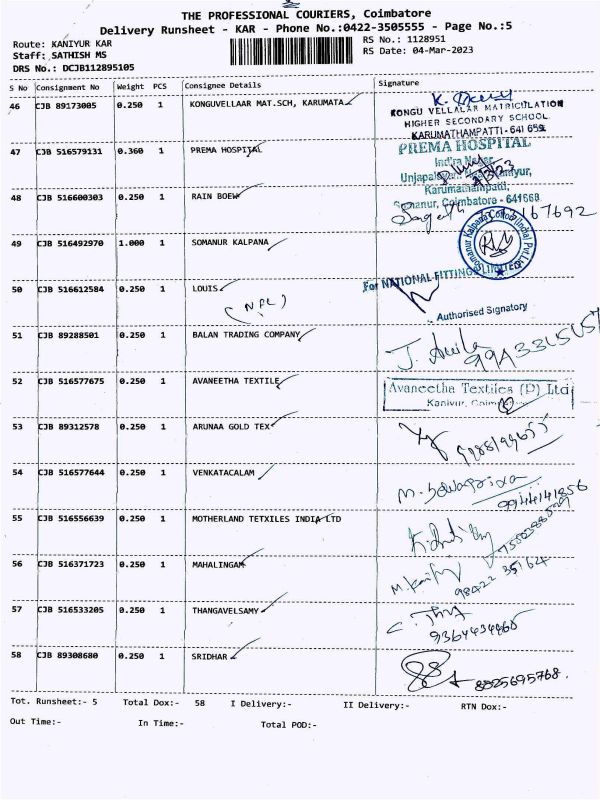 THE PROFESSIONAL COURIERS, Coimbatore
Delivery Runsheet - KAR - Phone No.:0422-3505555 - Page No.:5
Route: KANIYUR KAR
Staff: SATHISH MS
DRS No.: DCJB112895105
RS No.: 1128951
RS Date: 04-Mar-2023
S No Consignment No Weight PCS Consignee Details Signature
46 CJB 89173005 0.250 1 KONGUVELLAAR MAT.SCH, KARUMATA
KONGU VELLALAR MATRICULATION
HIGHER SECONDARY SCHOOL
KARUMATHAMPATTI - 641 659
47 CJB 516579131 0.360 1 PREMA HOSPITAL
PREMA HOSPITAL
Indira Nagar,
Karumathampatti,
Somanur, Coimbatore - 641668
48 CJB 516600303 0.250 1 RAIN BOEW
49 CJB 516492970 1.000 1 SOMANUR KALPANA
50 CJB 516612584 0.250 1 LOUIS
(NFL)
For NATIONAL FITTINGS LIMITED
Authorised Signatory
51 CJB 89288501 0.250 1 BALAN TRADING COMPANY
52 CJB 516577675 0.250 1 AVANEETHA TEXTILE
Avaneetha Textiles (P) Ltd
Kaniyur,
53 CJB 89312578 0.250 1 ARUNAA GOLD TEX
54 CJB 516577644 0.250 1 VENKATACALAM
9944141856
55 CJB 516556639 0.250 1 MOTHERLAND TETXILES INDIA LTD
56 CJB 516371723 0.250 1 MAHALINGAM
98422 35164
57 CJB 516533205 0.250 1 THANGAVELSAMY
9364434465
58 CJB 89308680 0.250 1 SRIDHAR
8825695768.
Tot. Runsheet:- 5 Total Dox:- 58 I Delivery:- II Delivery:- RTN Dox:-
Out Time:- In Time:- Total POD:-